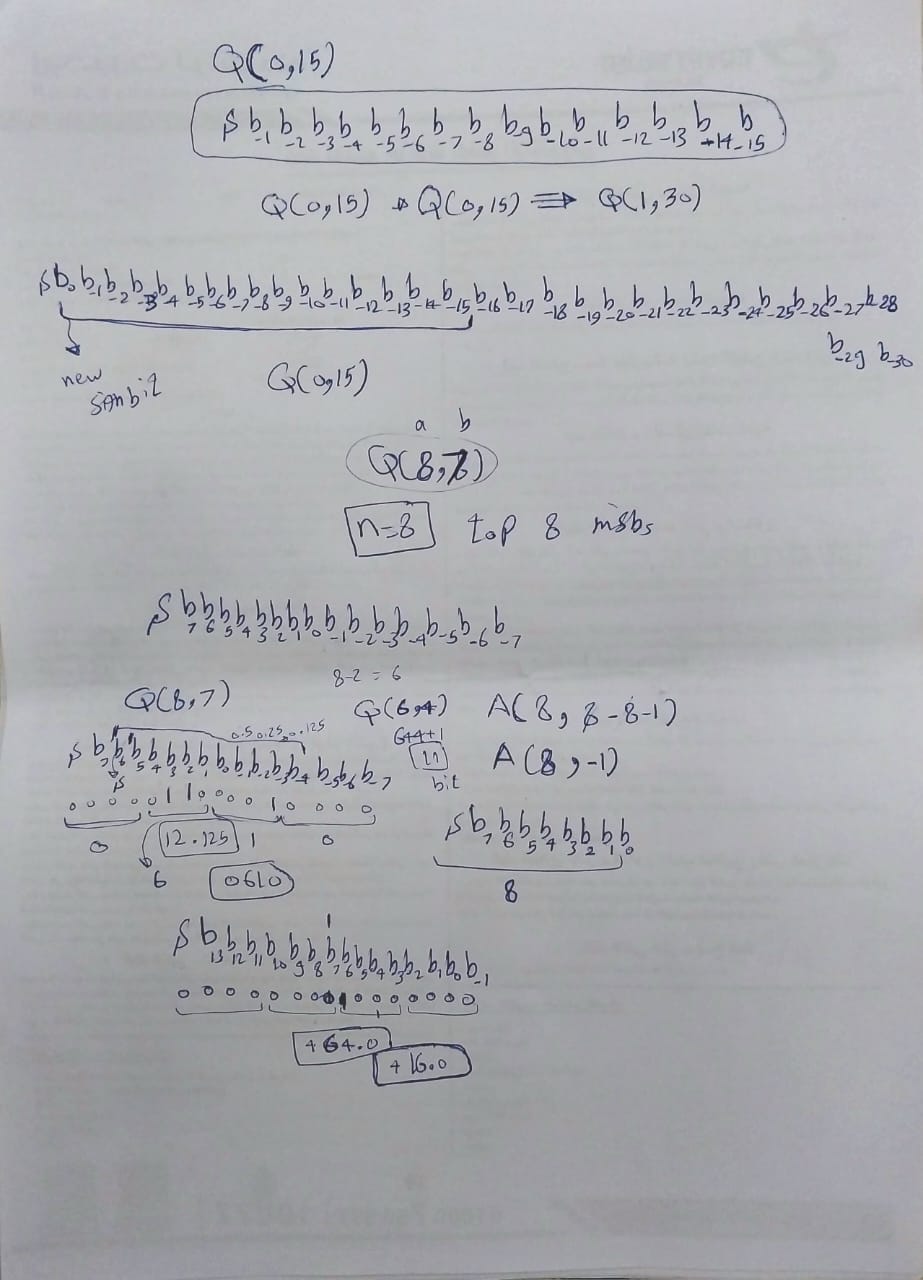 Q(0,15)
S b-1 b-2 b-3 b-4 b-5 b-6 b-7 b-8 b9 b-10 b-11 b-12 b-13 b-14 b-15
Q(0,15) * Q(0,15) ⇒ Q(1,30)
S b0 b-1 b-2 b-3 b-4 b-5 b-6 b-7 b-8 b-9 b-10 b-11 b-12 b-13 b-14 b-15 b-16 b-17 b-18 b-19 b-20 b-21 b-22 b-23 b-24 b-25 b-26 b-27 b-28
b-29 b-30
new
Q(0,15)
a b
Q(8,7)
n=8 top 8 msbs
S b7 b6 b5 b4 b3 b2 b1 b0 b-1 b-2 b-3 b-4 b-5 b-6 b-7
8-2 = 6
Q(8,7) Q(6,4) A(8, 8-8-1)
0.5 0.25 0.125 6+4+1
S b7 b6 b5 b4 b3 b2 b1 b0 b-1 b-2 b-3 b-4 b-5 b-6 b-7 11 A(8,-1)
S bit
0 0 0 0 0 1 1 0 0 0 0 1 0 0 0 0
S b7 b6 b5 b4 b3 b2 b1 b0
0 12.125 1 0
6 0610 8
S b13 b12 b11 b10 b9 b8 b7 b6 b5 b4 b3 b2 b1 b0 b-1
+64.0
+16.0